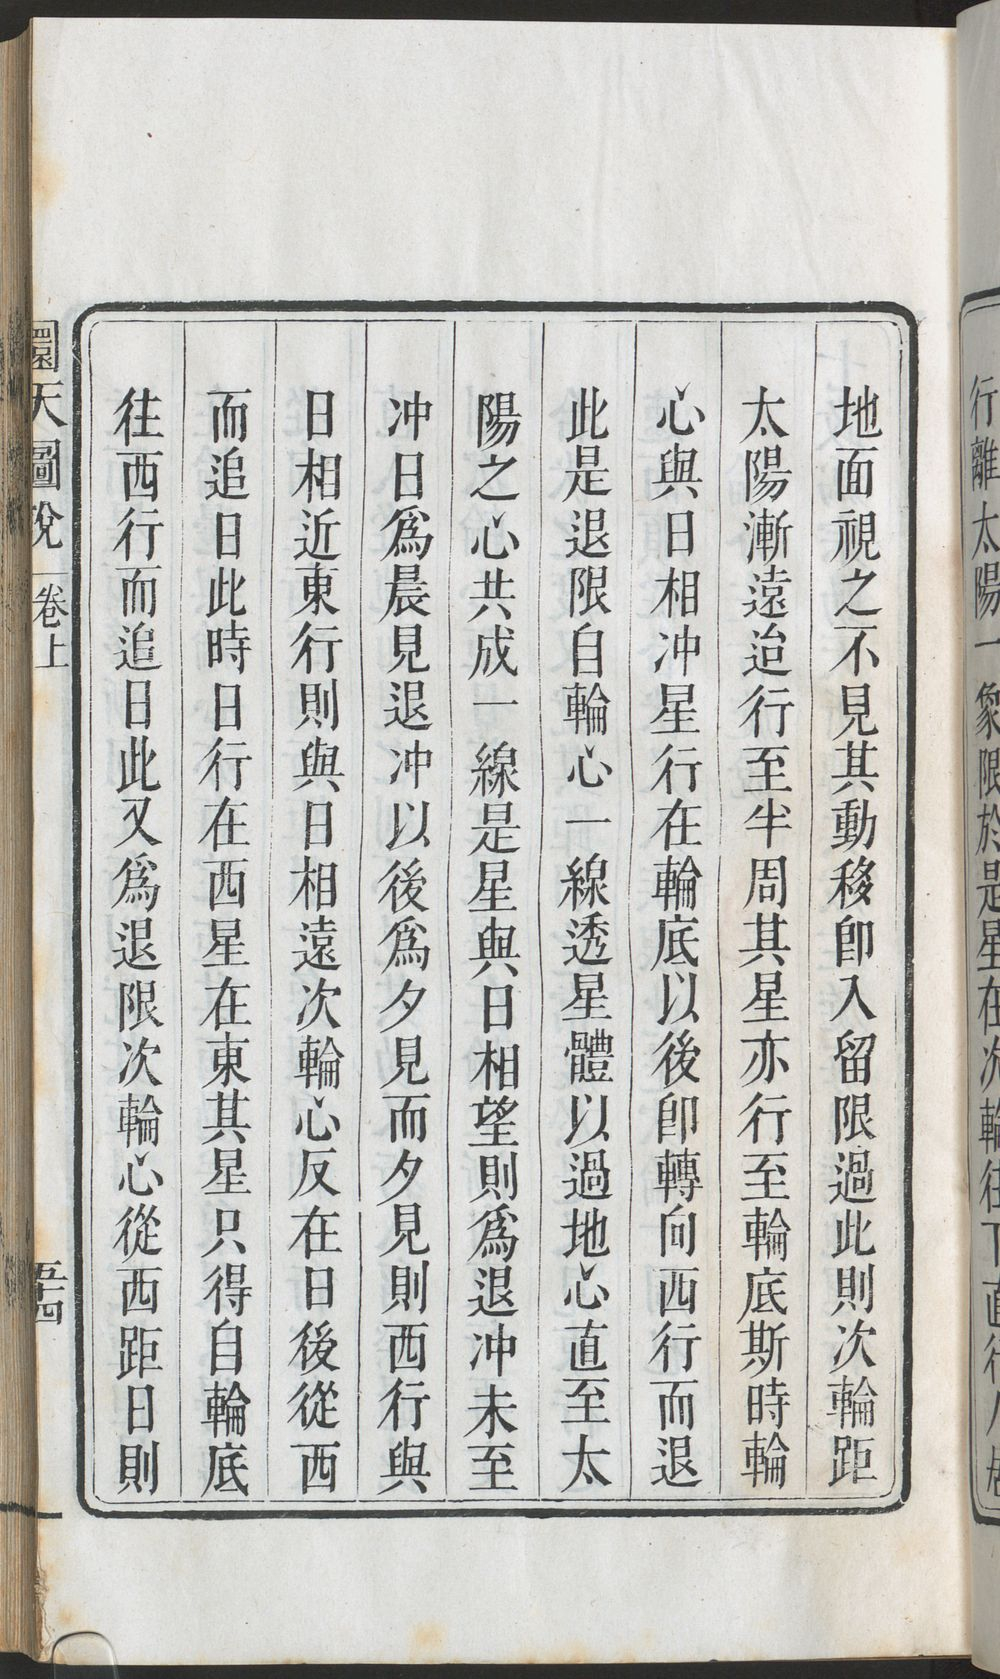 行離太陽一象限於是星在次輪往下直行
地面視之不見其動移卽入留限過此則次輪距
太陽漸遠迨行至半周其星亦行至輪底斯時輪
心與日相冲星行在輪底以後卽轉向西行而退
此是退限自輪心一線透星體以過地心直至太
陽之心共成一線是星與日相望則爲退冲未至
冲日爲晨見退冲以後爲夕見而夕見則西行與
日相近東行則與日相遠次輪心反在日後從西
而追日此時日行在西星在東其星只得自輪底
往西行而追日此又爲退限次輪心從西距日則
圜天圖說 卷上 五十四